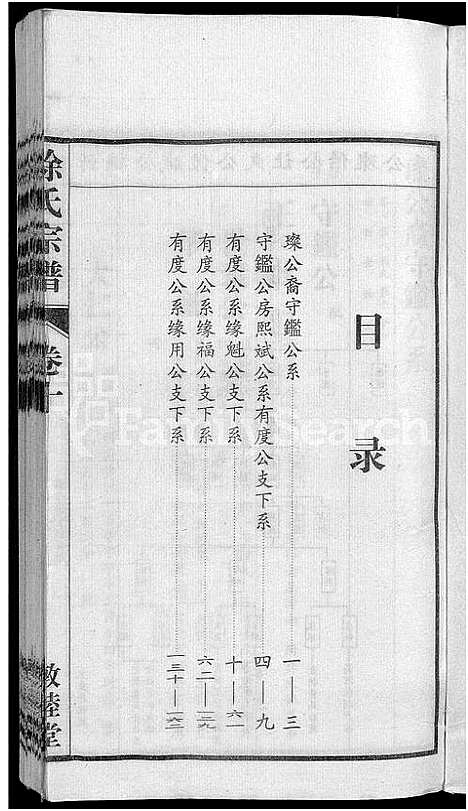 目录
璨公裔守鑑公系 一—三
守鑑公房熙斌公系有度公支下系 四—九
有度公系缘魁公支下系 十—六一
有度公系缘福公支下系 六二—一二九
有度公系缘用公支下系 一三十—
徐氏宗譜
卷十
敦睦堂
FamilySearch